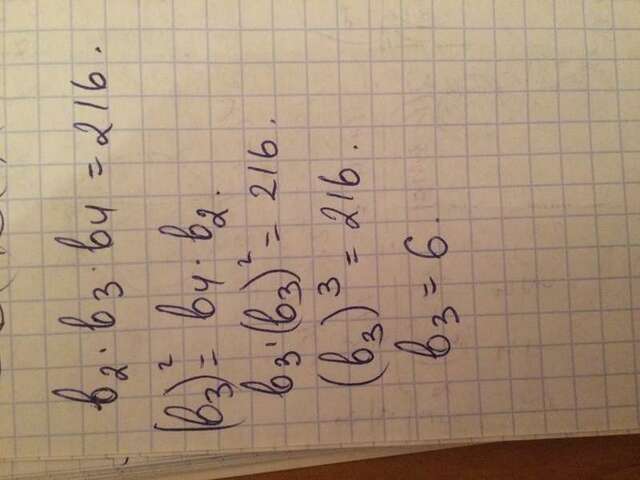 b₂ · b₃ · b₄ = 216.
(b₃)² = b₄ · b₂.
b₃ · (b₃)² = 216.
(b₃)³ = 216.
b₃ = 6.